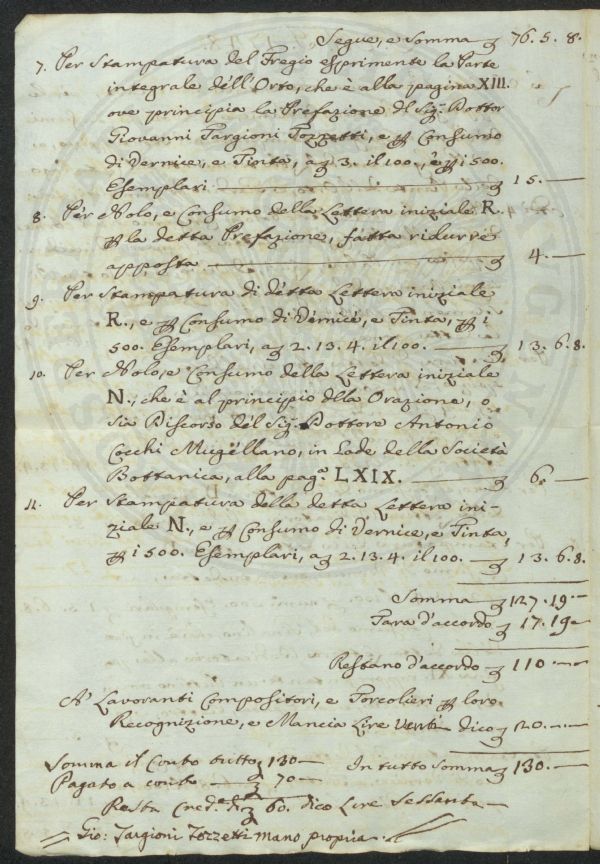 Segue, e Somma ʒ 76. 5. 8.
7. Per Stampatura del Fregio esprimente la Parte
integrale dell'Orto, che è alla pagina XIII.
ove principia la Prefazione del Sig.r Dottor
Giovanni Targioni Tozzetti, e p Consumo
di Vernice, e Tinta, a ʒ 3. il 100., e p i 500.
Esemplari — ʒ 15. —
8. Per Nolo, e Consumo della Lettera iniziale R.
p la detta Prefazione, fatta ridurre
apposta — ʒ 4. —
9. Per Stampatura di detta Lettera iniziale
R., e p Consumo di Vernice, e Tinta, p i
500. Esemplari, a ʒ 2. 13. 4. il 100. — ʒ 13. 6. 8.
10. Per Nolo, e Consumo della Lettera iniziale
N., che è al principio dlla Orazione, o
sia Discorso del Sig.r Dottore Antonio
Cocchi Mugellano, in Lode della Società
Bottanica, alla pag.a LXIX. — ʒ 6. —
11. Per Stampatura della detta Lettera ini-
ziale N., e p Consumo di Vernice, e Tinta,
p i 500. Esemplari, a ʒ 2. 13. 4. il 100. — ʒ 13. 6. 8.
Somma ʒ 127. 19 —
Tara d'accordo ʒ 17. 19 —
Restano d'accordo ʒ 110 —
A' Lavoranti Compositori, e Torcolieri p loro
Recognizione, e Mancia Lire Venti dico ʒ 20. —
Somma il Conto tutto ʒ 130 — In tutto Somma ʒ 130. —
Pagato a conto — ʒ 70 —
Resta Cred.e di ʒ 60. dico Lire Sessanta —
Gio: Targioni Tozzetti mano propria.